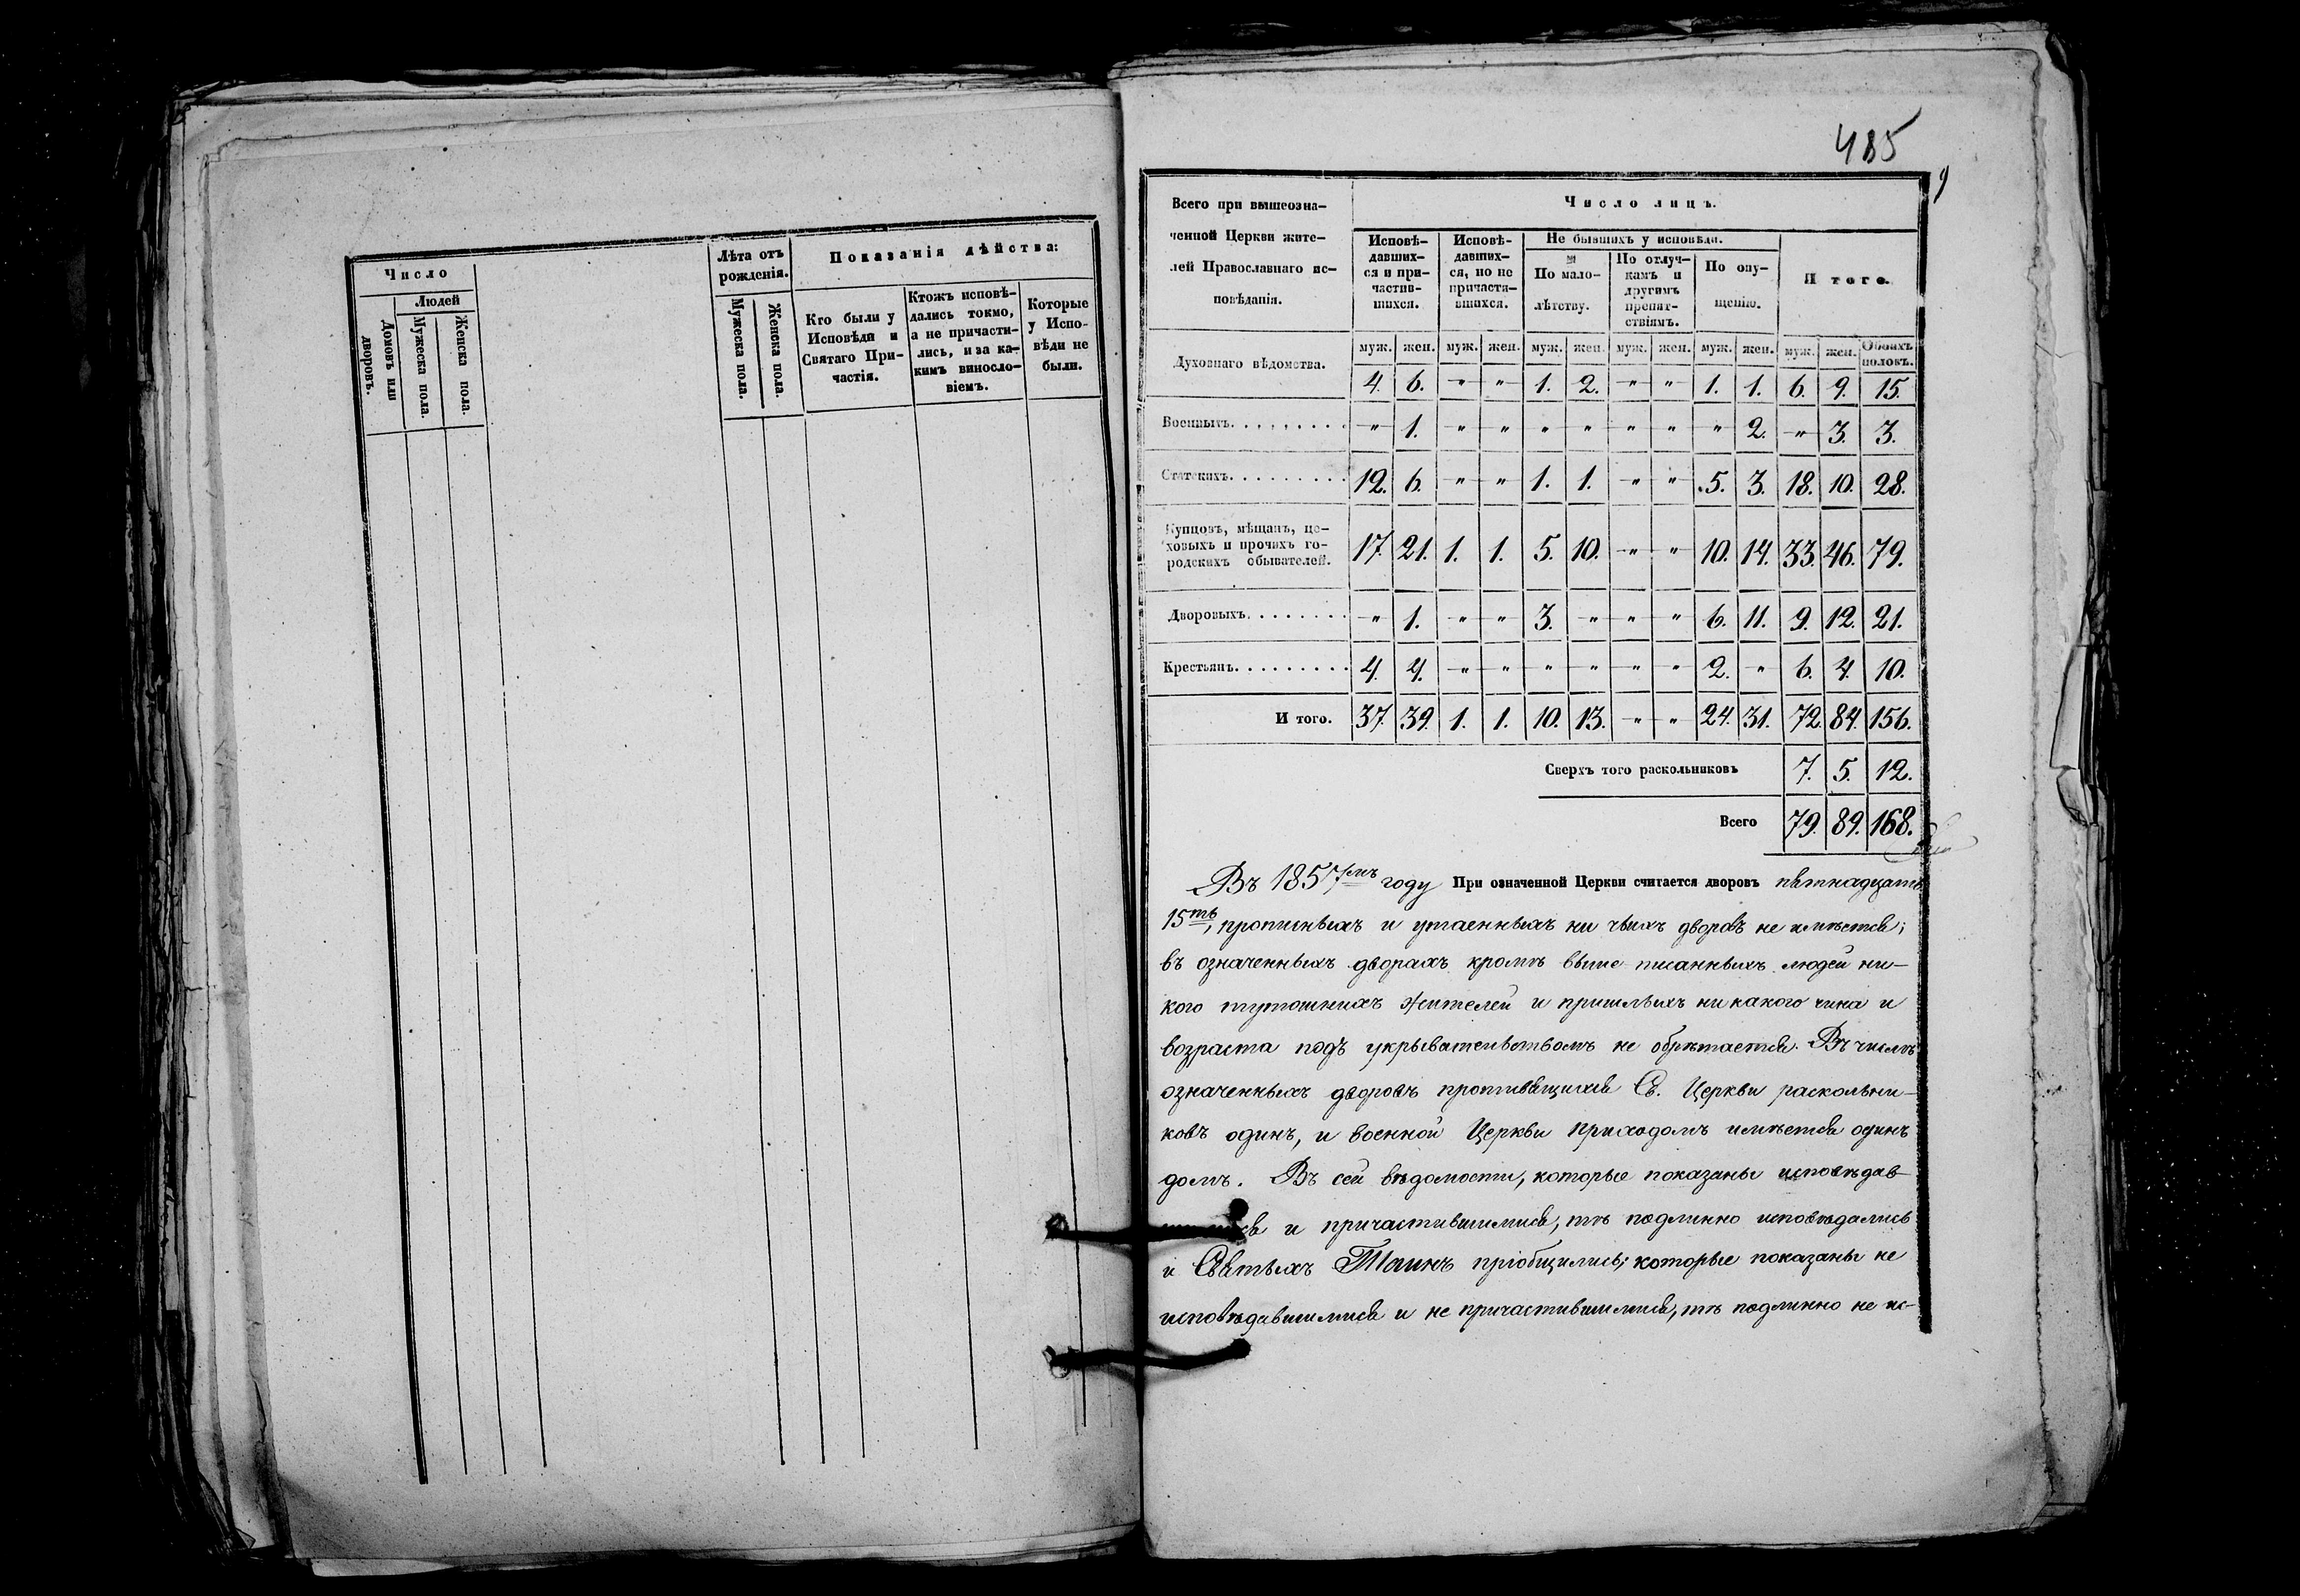 Число
Людей
Домовъ или дворовъ.
Мужеска пола.
Женска пола.
Лѣта отъ рожденія.
Мужеска пола.
Женска пола.
Показанія дѣйства:
Кто были у
Исповѣди и
Святаго При-
частія.
Ктожъ исповѣ-
дались токмо,
а не причасти-
лись, и за ка-
кимъ винослo-
віемъ.
Которые
у Испо-
вѣди не
были.
485
9
Всего при вышеозна-
ченной Церкви жите-
лей Православнаго ис-
повѣданія.
Число лицъ.
Исповѣ-
давших-
ся и при-
частив-
шихся.
Исповѣ-
давших-
ся, но не
причасти-
вшихся.
Не бывшихъ у исповѣди.
По мало-
лѣтству.
По отлуч-
камъ и
другимъ
препят-
ствіямъ.
По опу-
щенію.
И того.
муж. жен. муж. жен. муж. жен. муж. жен. муж. жен. муж. жен. Обоихъ половъ.
Духовнаго вѣдомства. 4. 6. " " 1. 2. " " 1. 1. 6. 9. 15.
Военныхъ. . . . . . . . . " 1. " " " " " " " 2. " 3. 3.
Статскихъ. . . . . . . . . 12. 6. " " 1. 1. " " 5. 3. 18. 10. 28.
Купцовъ, мѣщанъ, це-
ховыхъ и прочихъ го-
родскихъ обывателей. 17. 21. 1. 1. 5. 10. " " 10. 14. 33. 46. 79.
Дворовыхъ. . . . . . . . " 1. " " 3. " " " 6. 11. 9. 12. 21.
Крестьянъ. . . . . . . . . 4. 4. " " " " " " 2. " 6. 4. 10.
И того. 37. 39. 1. 1. 10. 13. " " 24. 31. 72. 84. 156.
Сверхъ того раскольниковъ 7. 5. 12.
Всего 79. 89. 168.
Въ 1857мъ году При означенной Церкви считается дворовъ пятнадцать
15ть, прописныхъ и утаенныхъ ни чьихъ дворовъ не имѣется;
въ означенныхъ дворахъ кромѣ выше писанныхъ людей ни-
кого тутошнихъ жителей и пришлыхъ ни какого чина и
возраста подъ укрывательствомъ не обрѣтается. Въ числѣ
означенныхъ дворовъ противящихся Св. Церкви раскольни-
ковъ одинъ, и военной Церкви приходомъ имѣется одинъ
домъ. Въ сей вѣдомости, которые показаны исповѣдав-
и причастившимися, тѣ подлинно исповѣдались
и Святыхъ Таинъ пріобщились; которые показаны не
исповѣдавшимися и не причастившимися, тѣ подлинно не ис-